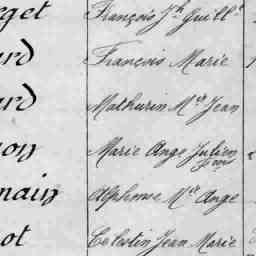 rget François Jh Guillt
ard François Marie
ard Mathurin Mie Jean
non Marie Ange Julien
fois
main Alphonse Mie Ange
ot Celestin Jean Marie